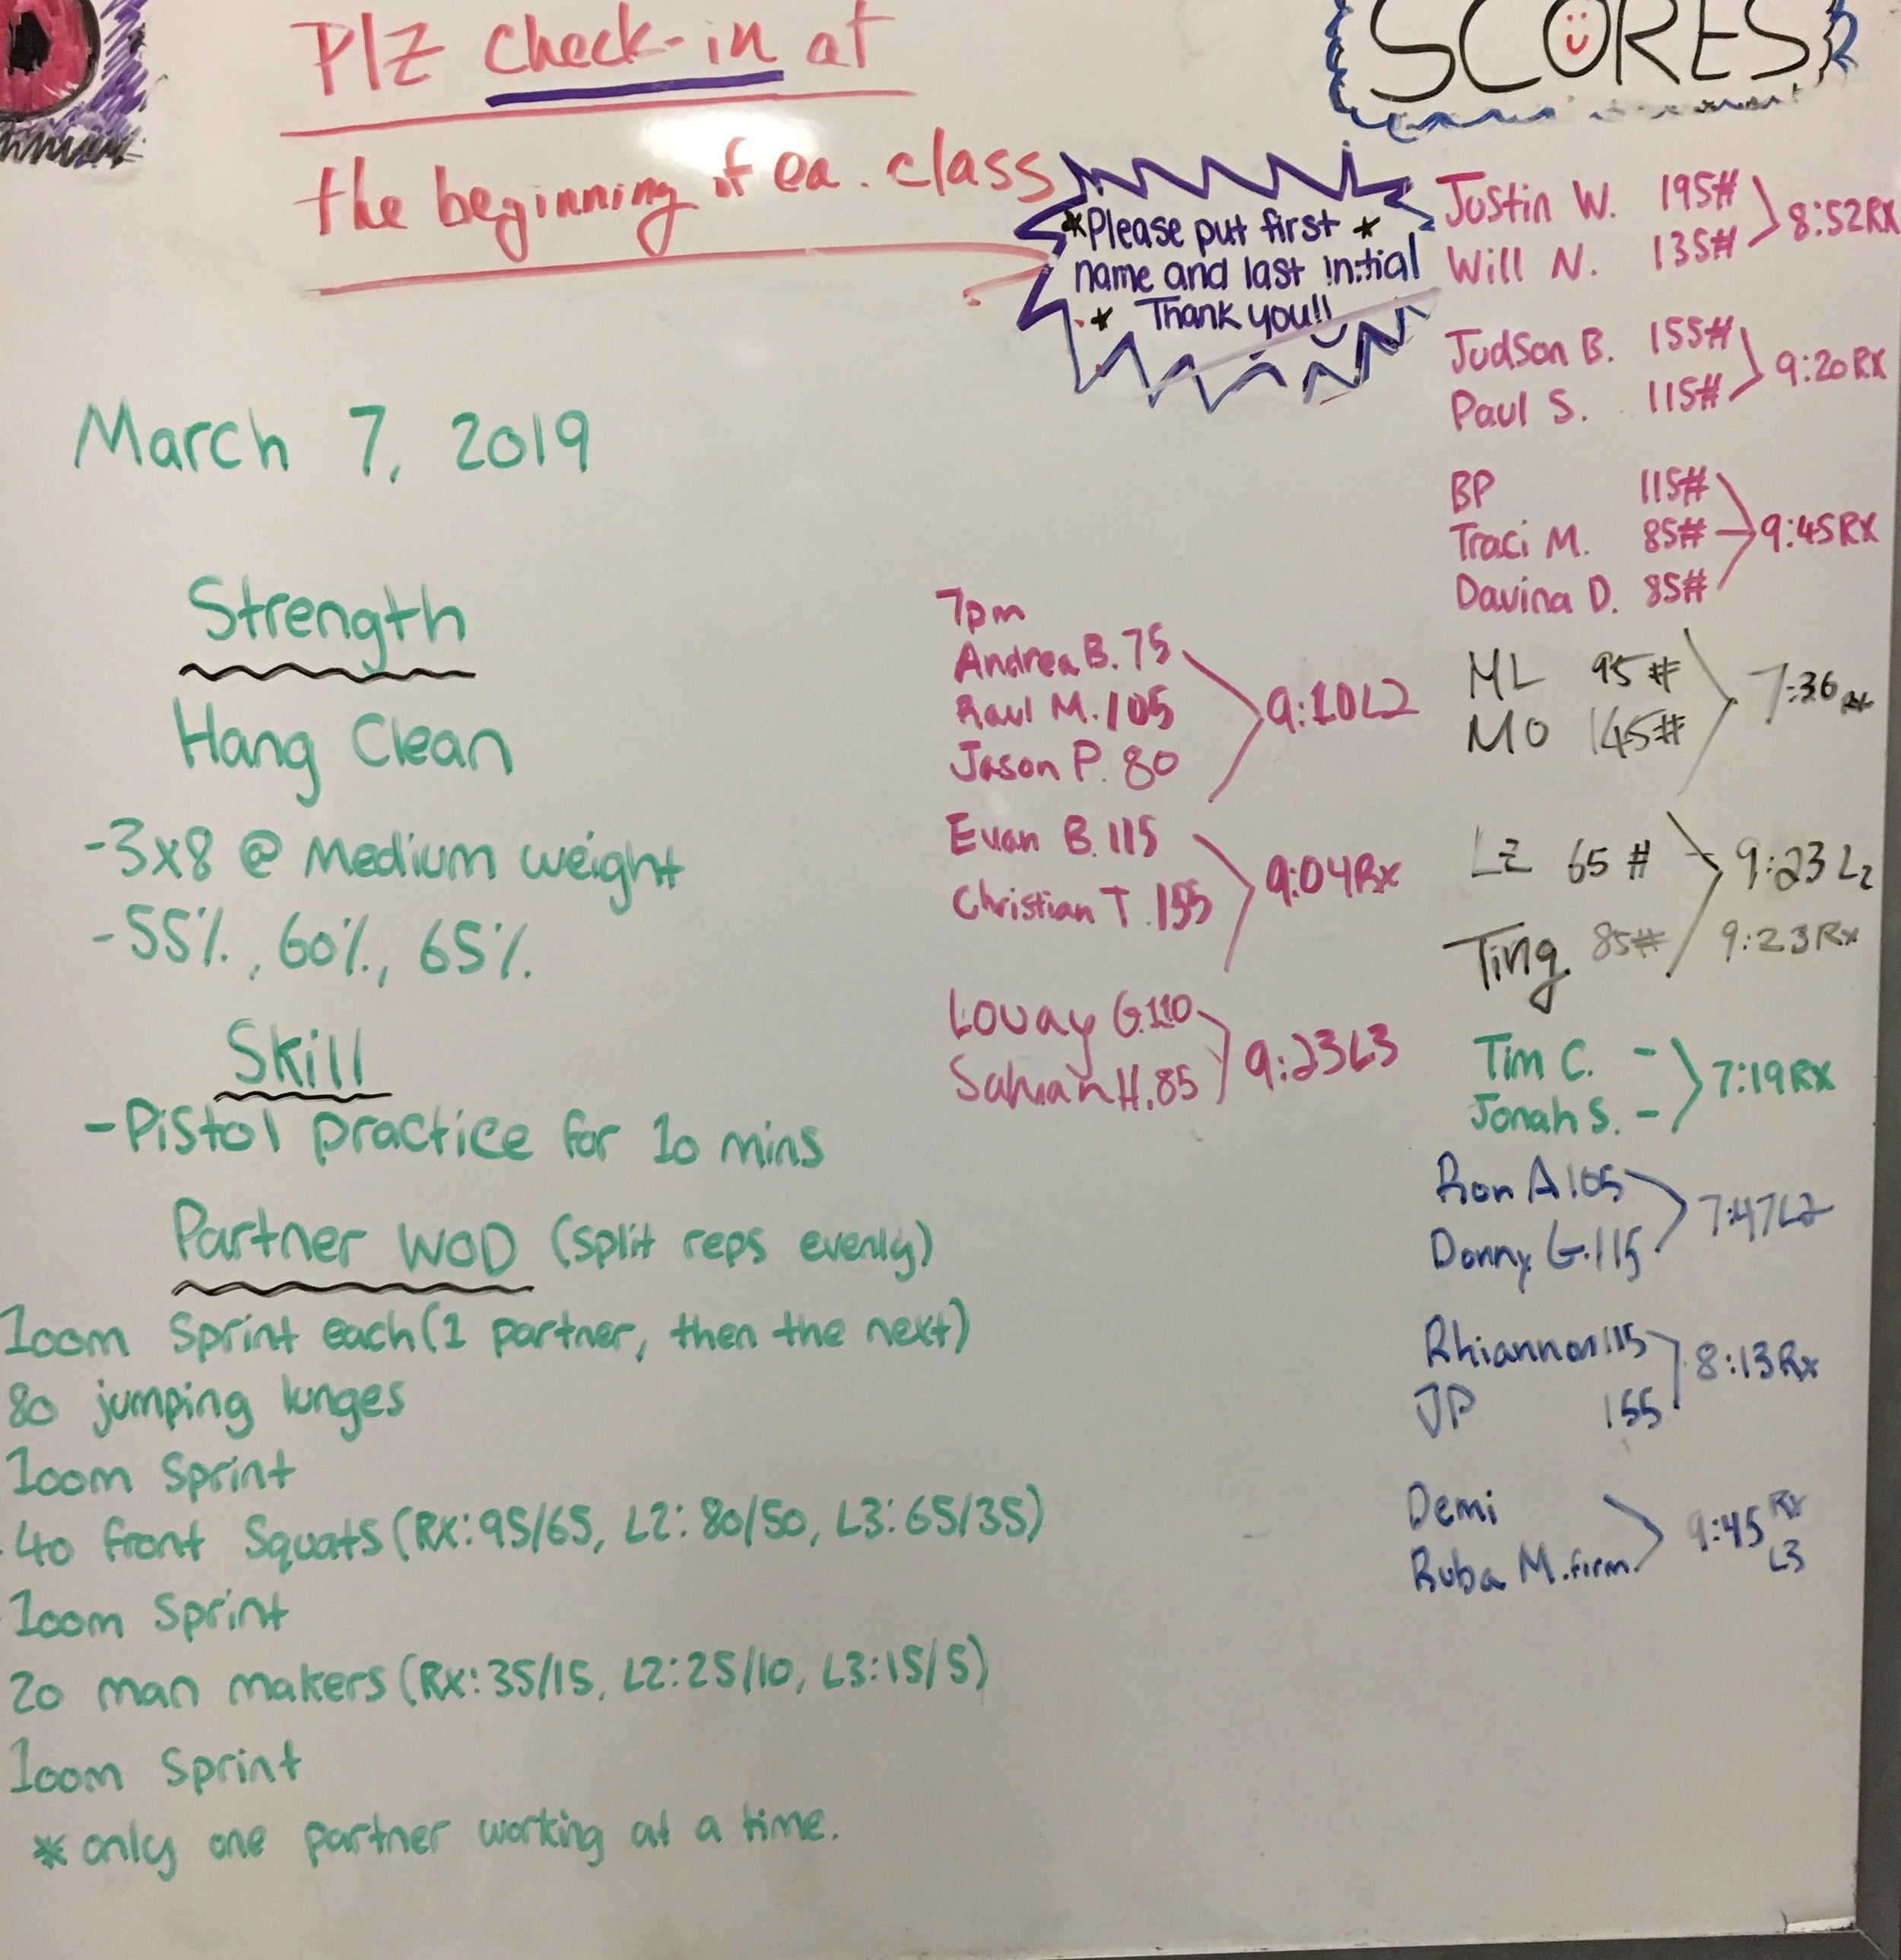 Plz check-in at
the beginning of ea. class
*Please put first *
name and last initial
* Thank you!!
March 7, 2019
Strength
Hang Clean
-3x8 @ Medium weight
-55%, 60%, 65%.
Skill
-Pistol practice for 10 mins
Partner WOD (split reps evenly)
100m Sprint each (1 partner, then the next)
80 jumping lunges
100m Sprint
40 front Squats (RX: 95/65, L2: 80/50, L3: 65/35)
100m Sprint
20 man makers (RX: 35/15, L2: 25/10, L3: 15/5)
100m Sprint
* only one partner working at a time.
7pm
Andrea B. 75
Raul M. 105
Jason P. 80
9:10L2
Evan B. 115
Christian T. 155
9:04Rx
Louay G. 110
H. 85
9:23L3
SCORES
Justin W. 195#
Will N. 135#
8:52RX
Judson B. 155#
Paul S. 115#
9:20RX
BP 115#
Traci M. 85#
Davina D. 85#
9:45RX
ML 95#
MO 145#
7:36 RX
LZ 65 # 9:23 L2
Ting 85# 9:23Rx
Tim C. -
Jonah S. -
7:19RX
Ron A 105
Donny G. 115
7:47L2
Rhiannon 115
JP 155
8:13Rx
Demi
Ruba M. firm.
9:45 RX
L3